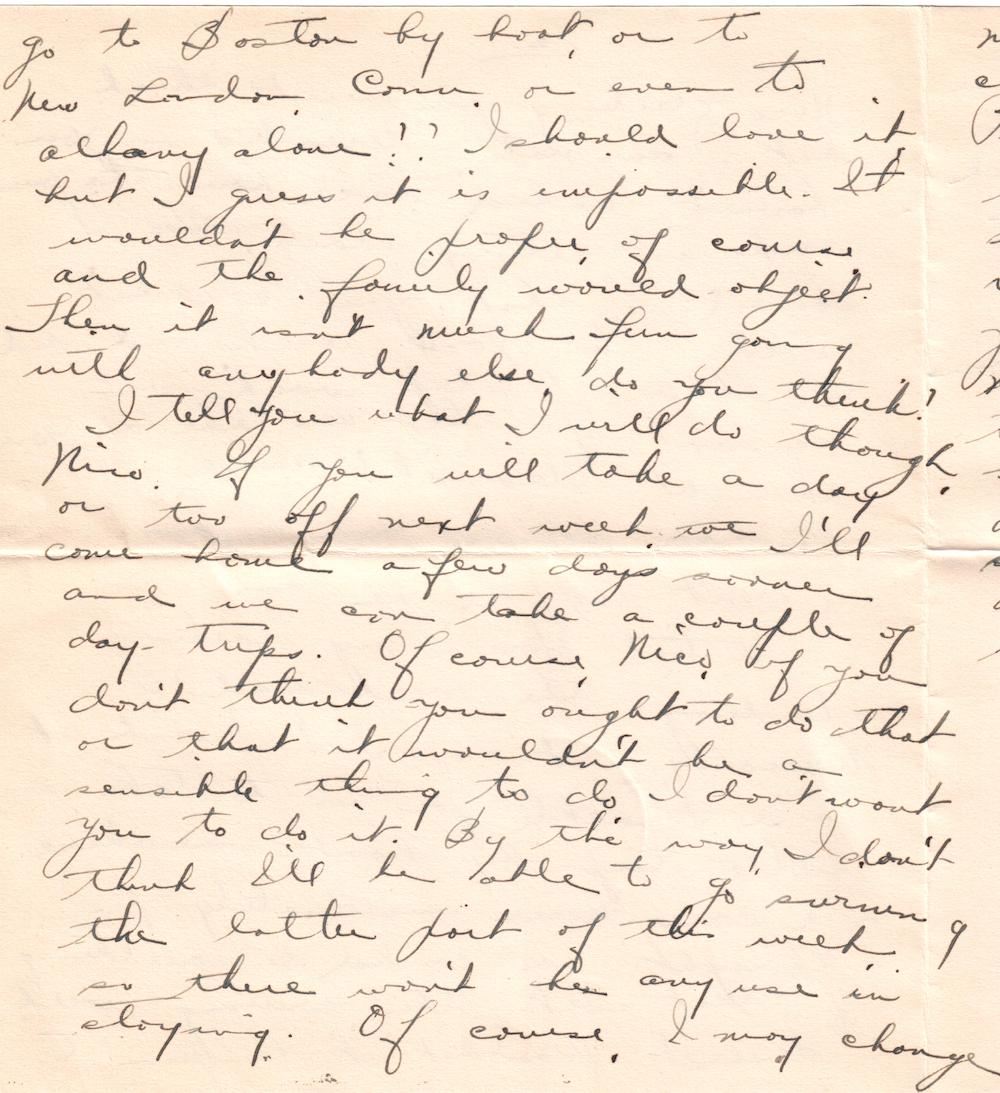 go to Boston by boat, or to
New London, Conn. or even to
albany alone!! I should love it,
but I guess it is impossible. It
wouldn't be proper, of course,
and the family would object.
Then it isn't much fun going
with anybody else, do you think?
I tell you what I will do though,
Nico. If you will take a day
or two off next week. we I'll
come home a few days sooner
and we can take a couple of
day trips. Of course, Nico, if you
don't think you ought to do that
or that it wouldn't be a
sensible thing to do I don't want
you to do it. By the way, I don't
think I'll be able to go swimming
the latter part of this week
so there won't be any use in
staying. Of course, I may change